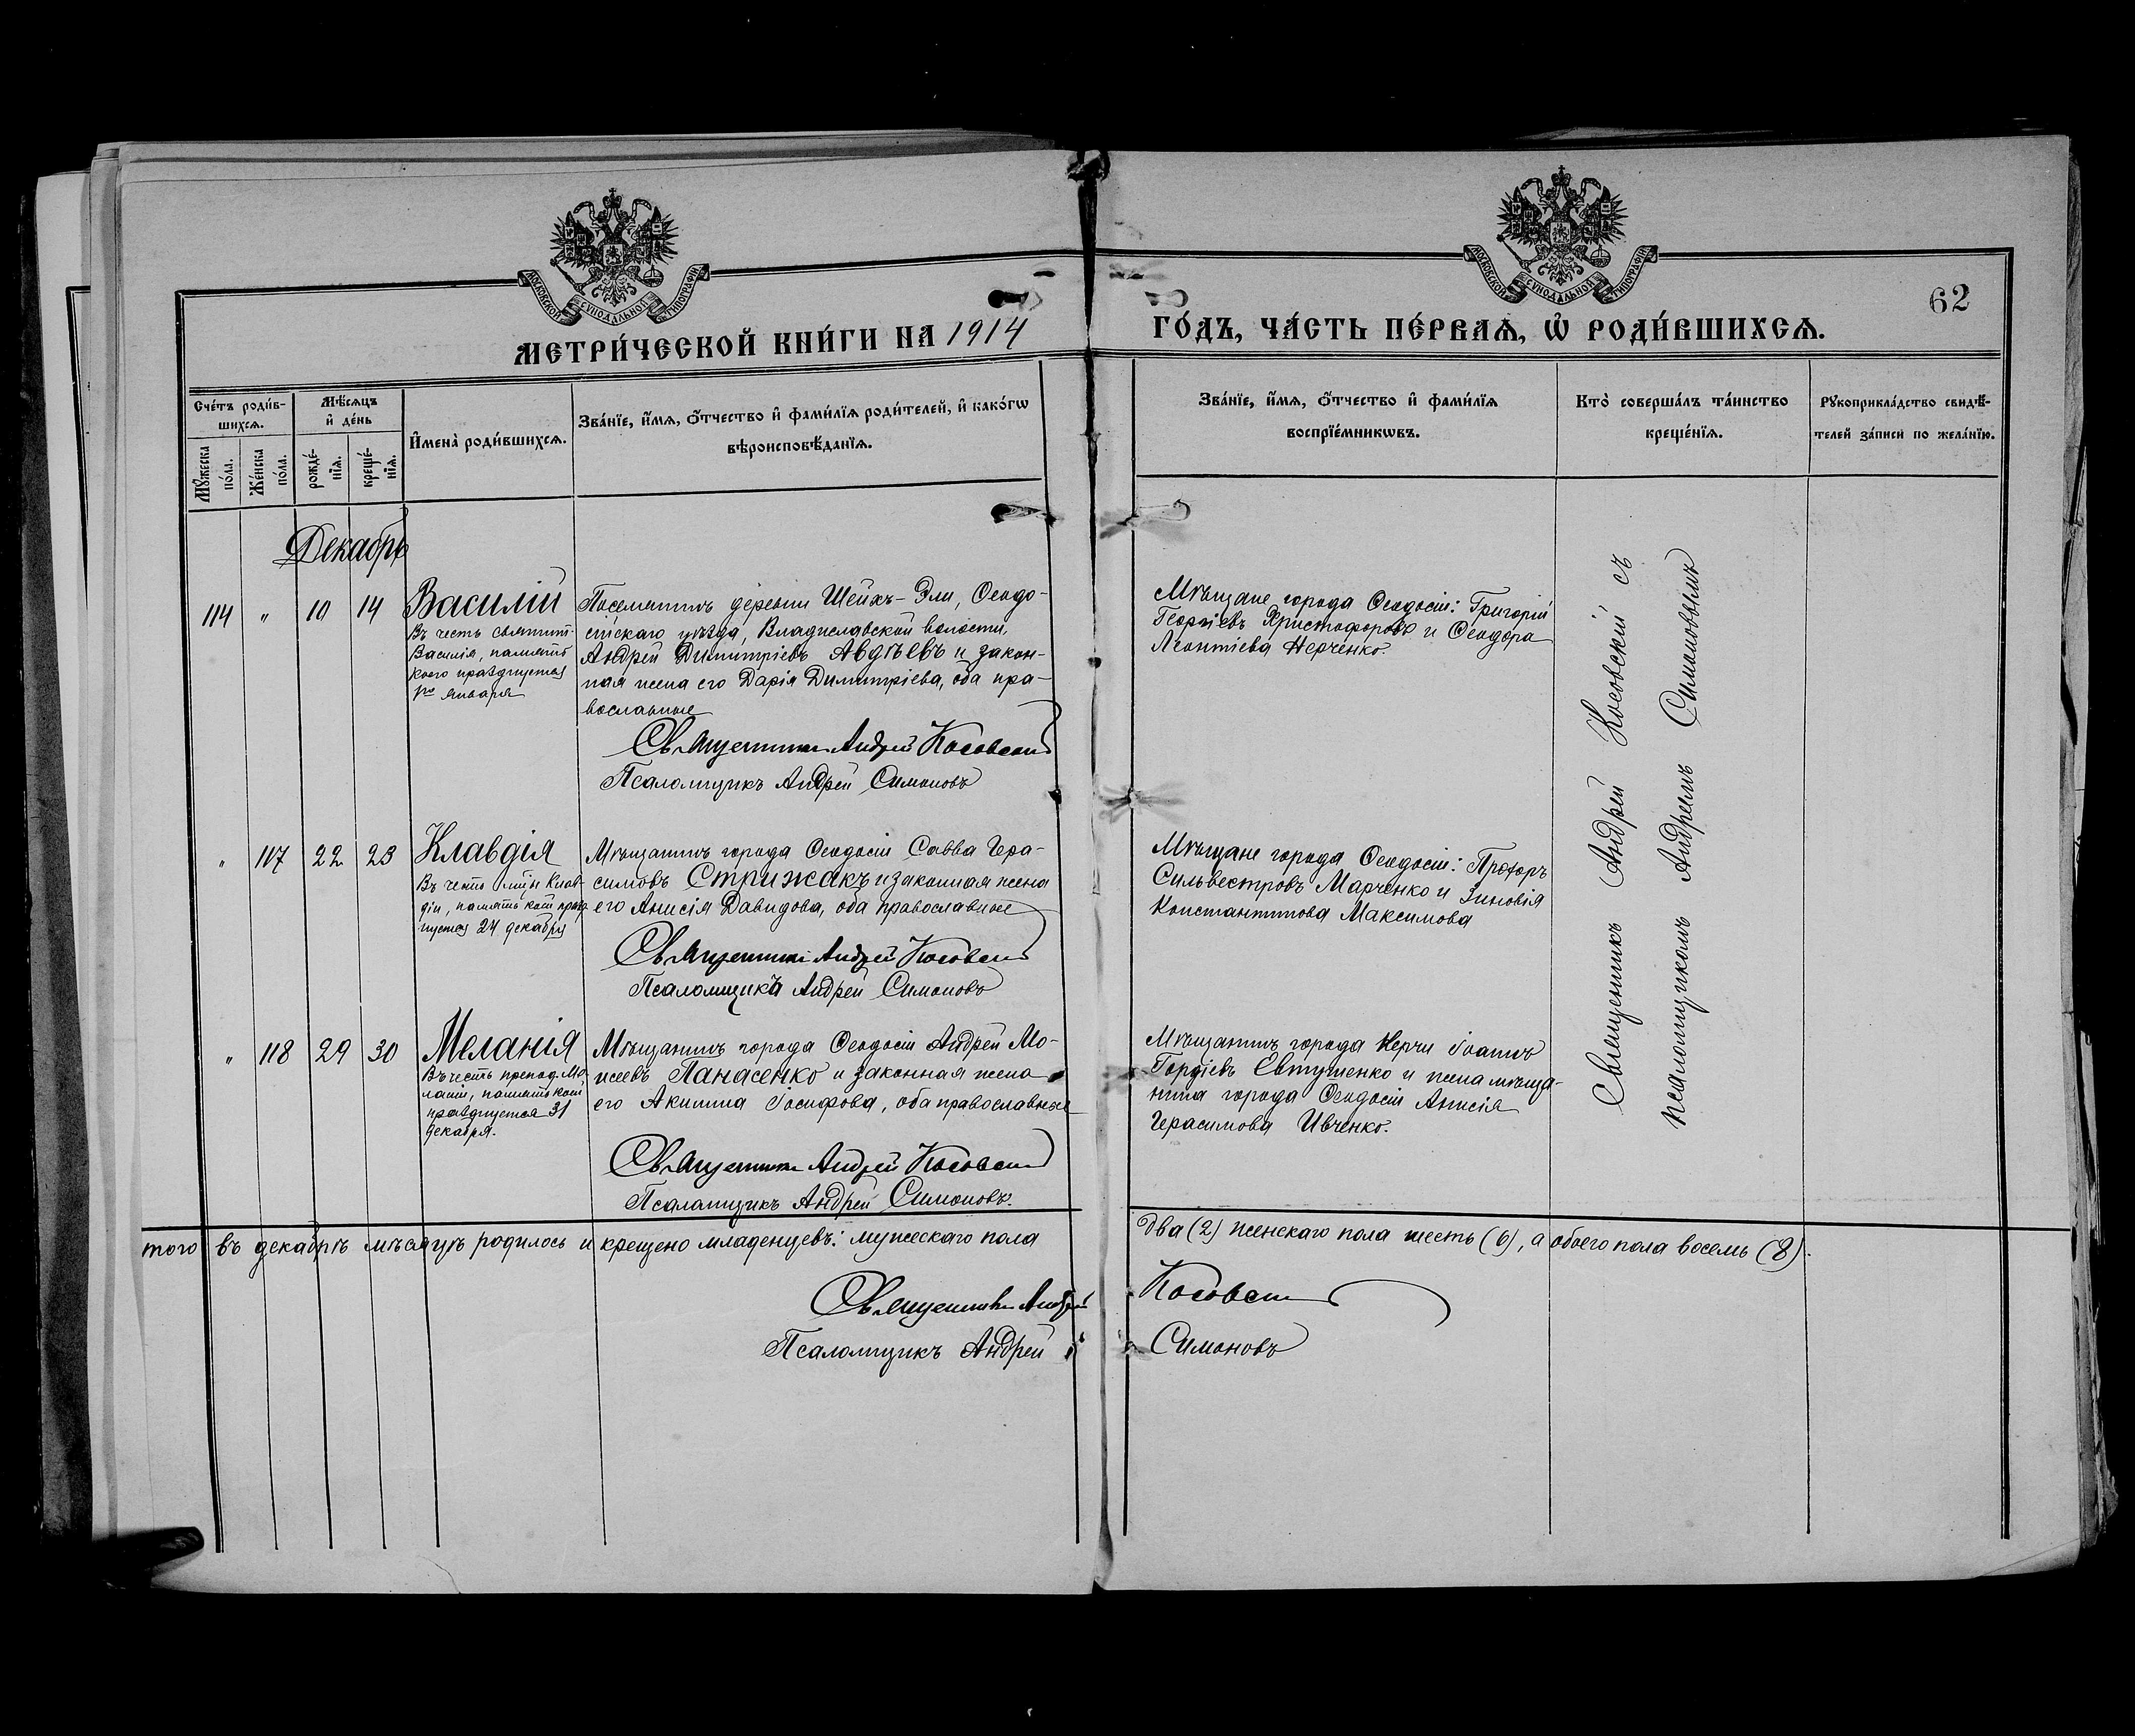 МОСКОВСКОЙ СѴНОДАЛЬНОЙ ТИПОГРАФІИ
МОСКОВСКОЙ СѴНОДАЛЬНОЙ ТИПОГРАФІИ
62
МЕТРИ́ЧЕСКОЙ КНИ́ГИ НА 1914
ГО́ДЪ, ЧА́СТЬ ПЕ́РВАѦ, Ѽ РОДИ́ВШИХСѦ.
Сче́тъ роди́в-
шихсѧ.
Мѣ́сѧцъ
и҆ де́нь
Мꙋ́жеска
по́ла.
Же́нска
по́ла.
рожде́-
нїѧ.
креще́-
нїѧ.
И҆мена̀ роди́вшихсѧ.
Зва́нїе, и҆́мѧ, ѻ҆́тчество и҆ фами́лїѧ роди́телей, и҆ како́гѡ
вѣроисповѣ́данїѧ.
Зва́нїе, и҆́мѧ, ѻ҆́тчество и҆ фами́лїѧ
воспрїе́мникѡвъ.
Кто̀ соверша́лъ та́инство
креще́нїѧ.
Рꙋкоприкла́дство свидѣ́-
телей за́писи по жела́нїю.
Декабрь
114 " 10 14
Василій
Въ честь святит.
Василія, память
коего празднуется
1го января
Поселянинъ деревни Шейхъ-Эли, Ѳеодо-
сійскаго уѣзда, Владиславской волости,
Андрей Димитріевъ Авдѣевъ и закон-
ная жена его Дарія Димитріева, оба пра-
вославные
Священникъ Андрей Косовскій
Псаломщикъ Андрей Симоновъ
Мѣщане города Ѳеодосіи: Григорій
Георгіевъ Христофоровъ и Ѳеодора
Леонтіева Нерченко.
" 117 22 23
Клавдія
Въ честь мцы Клав-
діи, память коей празд-
нуется 24 декабря
Мѣщанинъ города Ѳеодосіи Савва Гера-
симовъ Стрижакъ и законная жена
его Анисія Давидова, оба православные
Священникъ Андрей Косовскій
Псаломщикъ Андрей Симоновъ
Мѣщане города Ѳеодосіи: Прохоръ
Сильвестровъ Марченко и Зиновія
Константинова Максимова
" 118 29 30
Меланія
Въ честь препод. Ме-
ланіи, память коей
празднуется 31
декабря.
Мѣщанинъ города Ѳеодосіи Андрей Мо-
исеевъ Панасенко и законная жена
его Акилина Іосифова, оба православные
Священникъ Андрей Косовскій
Псаломщикъ Андрей Симоновъ.
Мѣщанинъ города Керчи Іоаннъ
Гордіевъ Евтушенко и жена мѣща-
нина города Ѳеодосіи Анисія
Герасимова Ивченко.
Священникъ Андрей Косовскій съ
псаломщикомъ Андреемъ Симоновымъ
того въ декабрѣ мѣсяцѣ родилось и крещено младенцевъ: мужескаго пола
два (2) женскаго пола шесть (6), а обоего пола восемь (8).
Священникъ Андрей Косовскій
Псаломщикъ Андрей Симоновъ